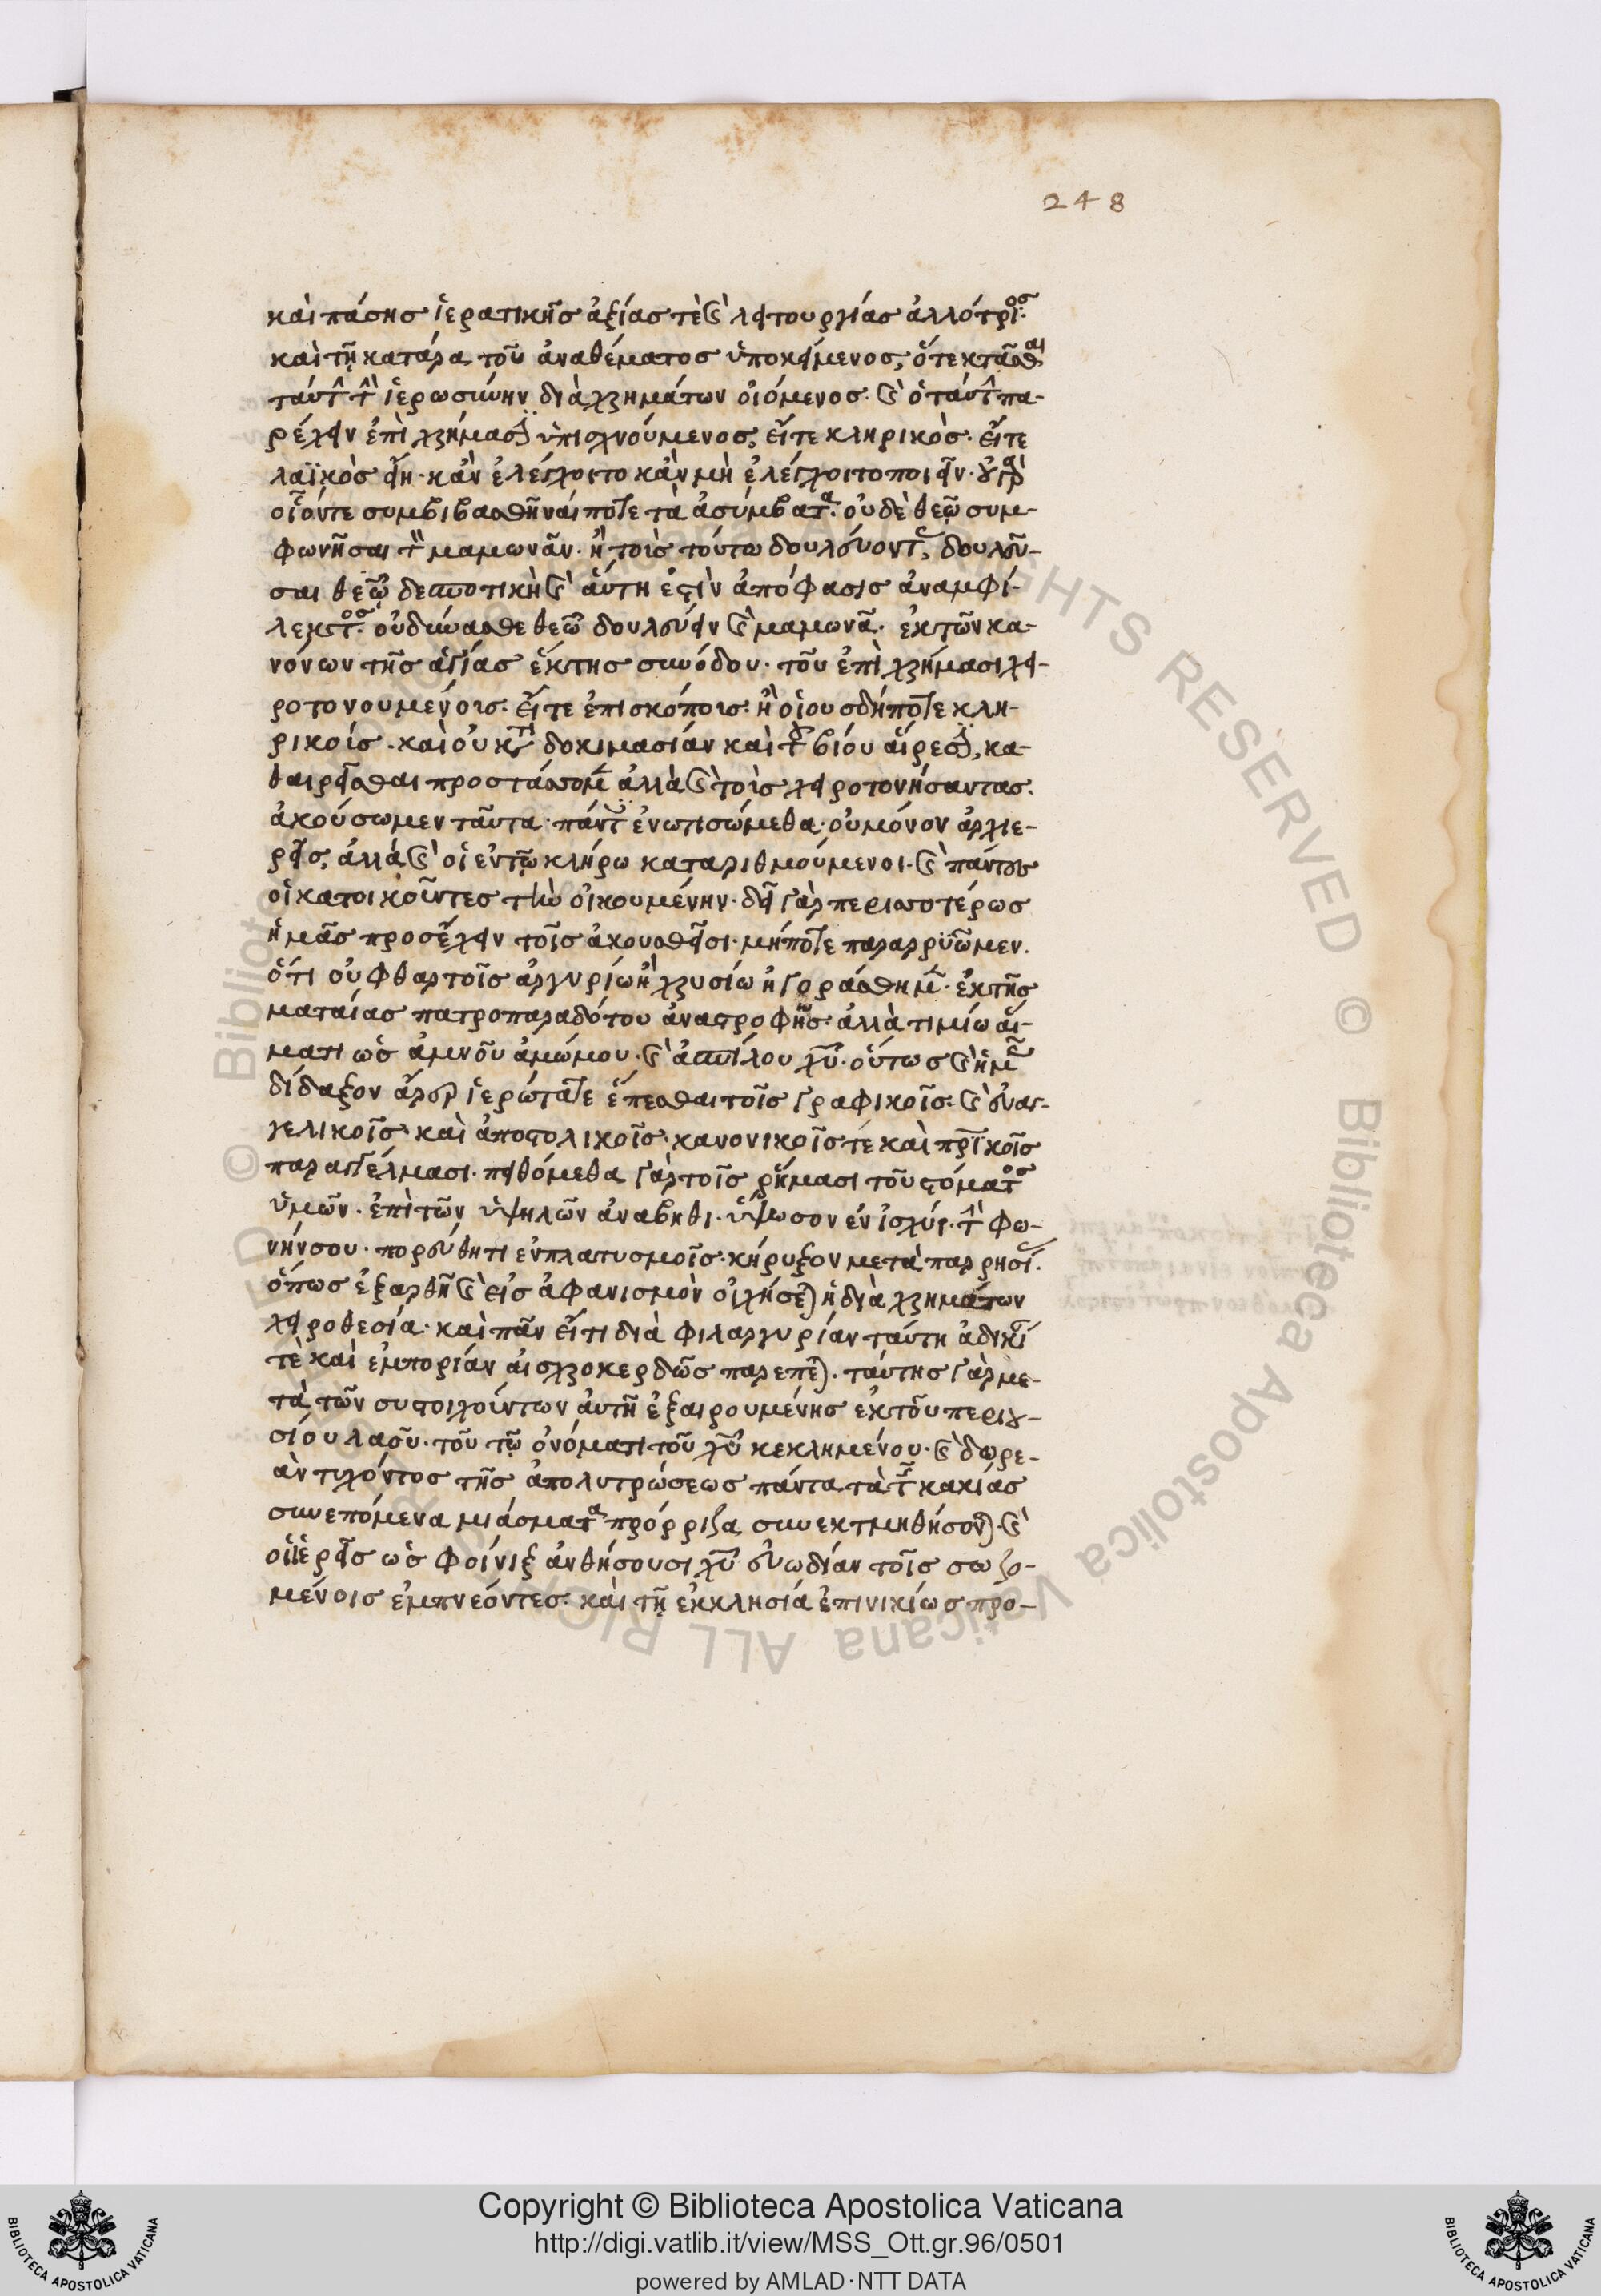 248
καὶ πάσης ἱερατικῆς ἀξίας τὲ καὶ λειτουργίας ἀλλότριος·
καὶ τῆ κατάρα τοῦ ἀναθέματος ὑποκείμενος, ὅτε κτᾶσθαι
ταύτην τὴν ἱερωσύνην διὰ χρημάτων οἰόμενος· καὶ ὁ ταύτην πα-
ρέχειν ἐπὶ χρήμασιν ὑπισχνούμενος, εἴτε κληρικὸς· εἴτε
λαϊκὸς εἴη· κἀν ἐλέγχοιτο κἀν μὴ ἐλέγχοιτο ποιεῖν· οὐ γὰρ
οἷόντε συμβιβασθῆναί ποτε τὰ ἀσύμβατα· οὐδὲ θεῶ συμ-
φωνῆσαι τὸν μαμωνᾶν· ἢ τοὶς τούτω δουλεύοντας, δουλεῦ-
σαι θεῶ δεσποτικὴ καὶ αὕτη ἐστὶν ἀπόφασις ἀναμφί-
λεκτος· οὐ δύνασθε θεῶ δουλεύειν καὶ μαμωνᾶ· ἐκ τῶν κα-
νόνων τῆς ἁγίας ἕκτης συνόδου· τοῦ ἐπὶ χρήμασι χει-
ροτονουμένοις· εἴτε ἐπισκόποις· ἢ οἱουσδήποτε κλη-
ρικοίς· καὶ οὐ κατὰ δοκιμασίαν καὶ τοῦ βίου αἵρεσιν, κα-
θαιρεῖσθαι προστάσσομεν ἀλλὰ καὶ τοὶς χειροτονήσαντας·
ἀκούσωμεν ταῦτα· πάντες ἐνωτισώμεθα· οὐ μόνον ἀρχιε-
ρεῖς, ἀλλά καὶ οἱ ἐν τῶ κλήρω καταριθμούμενοι· καὶ πάντες
οἱ κατοικοῦντες τὴν οἰκουμένην· δεῖ γὰρ περισσοτέρως
ἡμᾶς προσέχειν τοῖς ἀκουσθεῖσι· μήποτε παραρρϋῶμεν·
ὅτι οὐ φθαρτοῖς ἀργυρίω ἢ χρυσίω ἠγοράσθημεν· ἐκ τῆς
ματαίας πατροπαραδότου ἀναστροφῆς· ἀλλὰ τιμίω αἵ-
ματι ὡς ἀμνοῦ ἀμώμου· καὶ ἀσπίλου χῦ· οὕτως καὶ ἡμᾶς
δίδαξον ἆνερ ἱερώτατε ἕπεσθαι τοῖς γραφικοῖς· καὶ εὐαγ-
γελικοῖς· καὶ ἀποστολικοῖς· κανονικοῖς τέ καὶ πρικοῖς
παραγγέλμασι· πειθόμεθα γὰρ τοῖς ῥήμασι τοῦ στόματος
ὑμῶν· ἐπὶ τῶν ὑψηλῶν ἀναβηθι· ὕψωσον ἐν ἰσχύι· τὴν φω-
νήν σου· πορεύθητι ἐν πλατυσμοῖς· κήρυξον μετὰ παρρησίας·
ὅπως ἐξαρθῆ καὶ εἰς ἀφανισμὸν οἰχήσεται ἡ διὰ χρημάτων
χειροθεσία· καὶ πᾶν εἴτι διὰ φιλαργυρίαν ταύτη ἀδικίας
τὲ καὶ ἐμπορίαν αἰσχροκερδῶς παρέπεται· ταύτης γὰρ με-
τὰ τῶν συστοιχούντων αὐτῆ ἐξαιρουμένης ἐκ τοῦ περιου-
σίου λαοῦ· τοῦ τῶ ὀνόματι τοῦ χῦ κεκλημένου· καὶ δωρε-
ὰν τυχόντος τῆς ἀπολυτρώσεως πάντα τὰ τῆς κακίας
συνεπόμενα μιάσματα πρόρριζα συνεκτμηθήσονται· καὶ
οἱ ἱερεῖς ὡς φοίνιξ ἀνθήσουσι χῦ εὐωδίαν τοῖς σωζο-
μένοις ἐμπνέοντες· καὶ τῆ ἐκκλησία ἐπινικίως πρό-
© Biblioteca Apostolica Vaticana ALL RIGHTS RESERVED
Copyright © Biblioteca Apostolica Vaticana
http://digi.vatlib.it/view/MSS_Ott.gr.96/0501
powered by AMLAD·NTT DATA
BIBLIOTECA APOSTOLICA VATICANA
BIBLIOTECA APOSTOLICA VATICANA